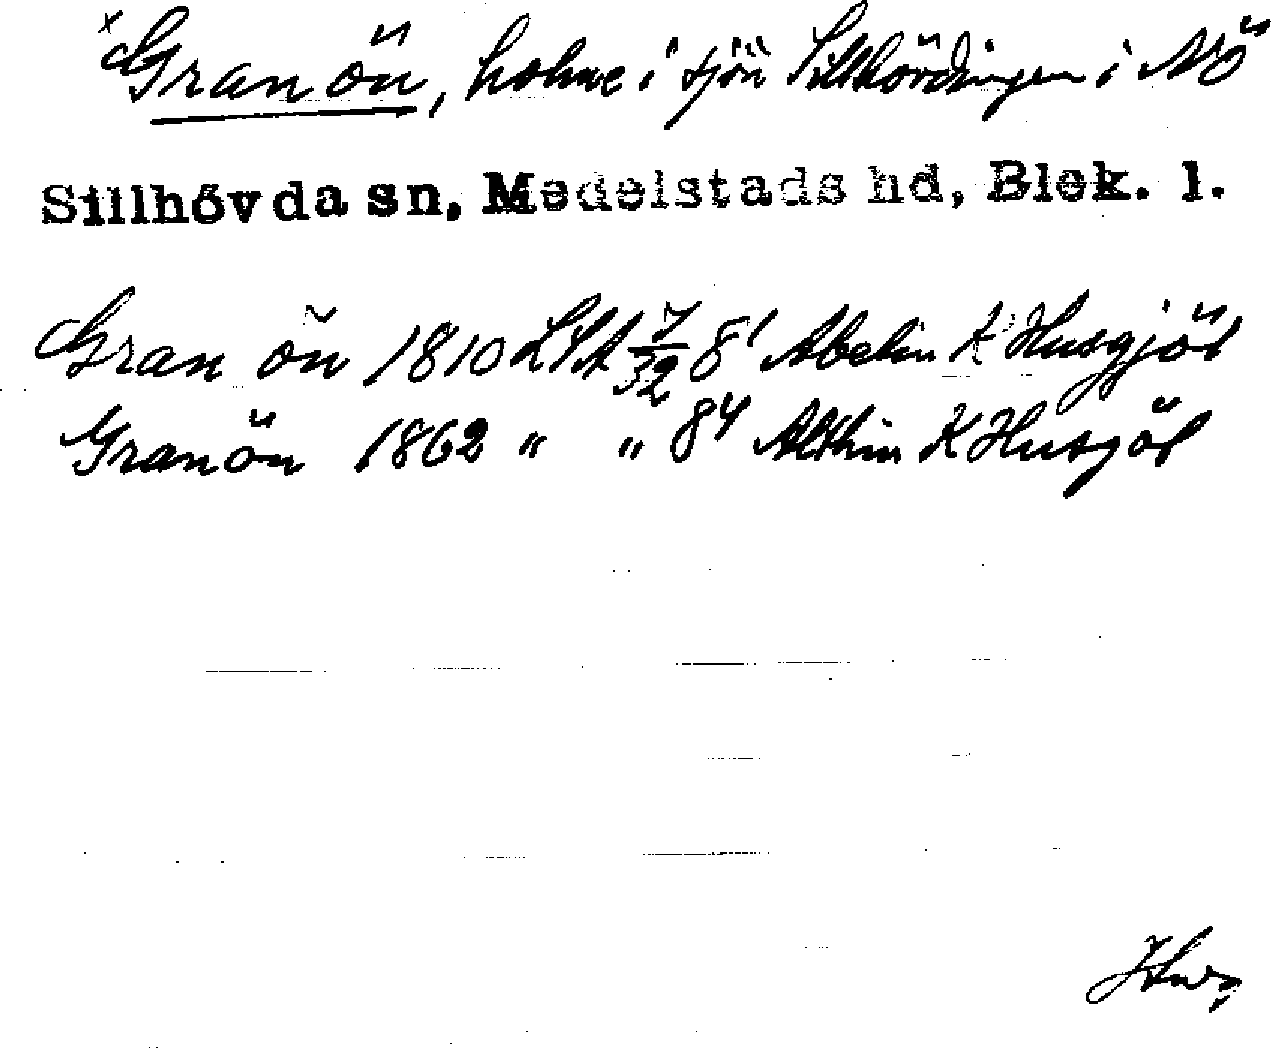 x Granön, holme i sjön Sillhövdingen i NÖ
Sillhövda sn, Medelstads hd, Blek. l.
Gran ön 1810 LSA 7/32 8¹ Abelin K Husgjöl
Granön 1862 " " 8⁴ Althin K Husgöl